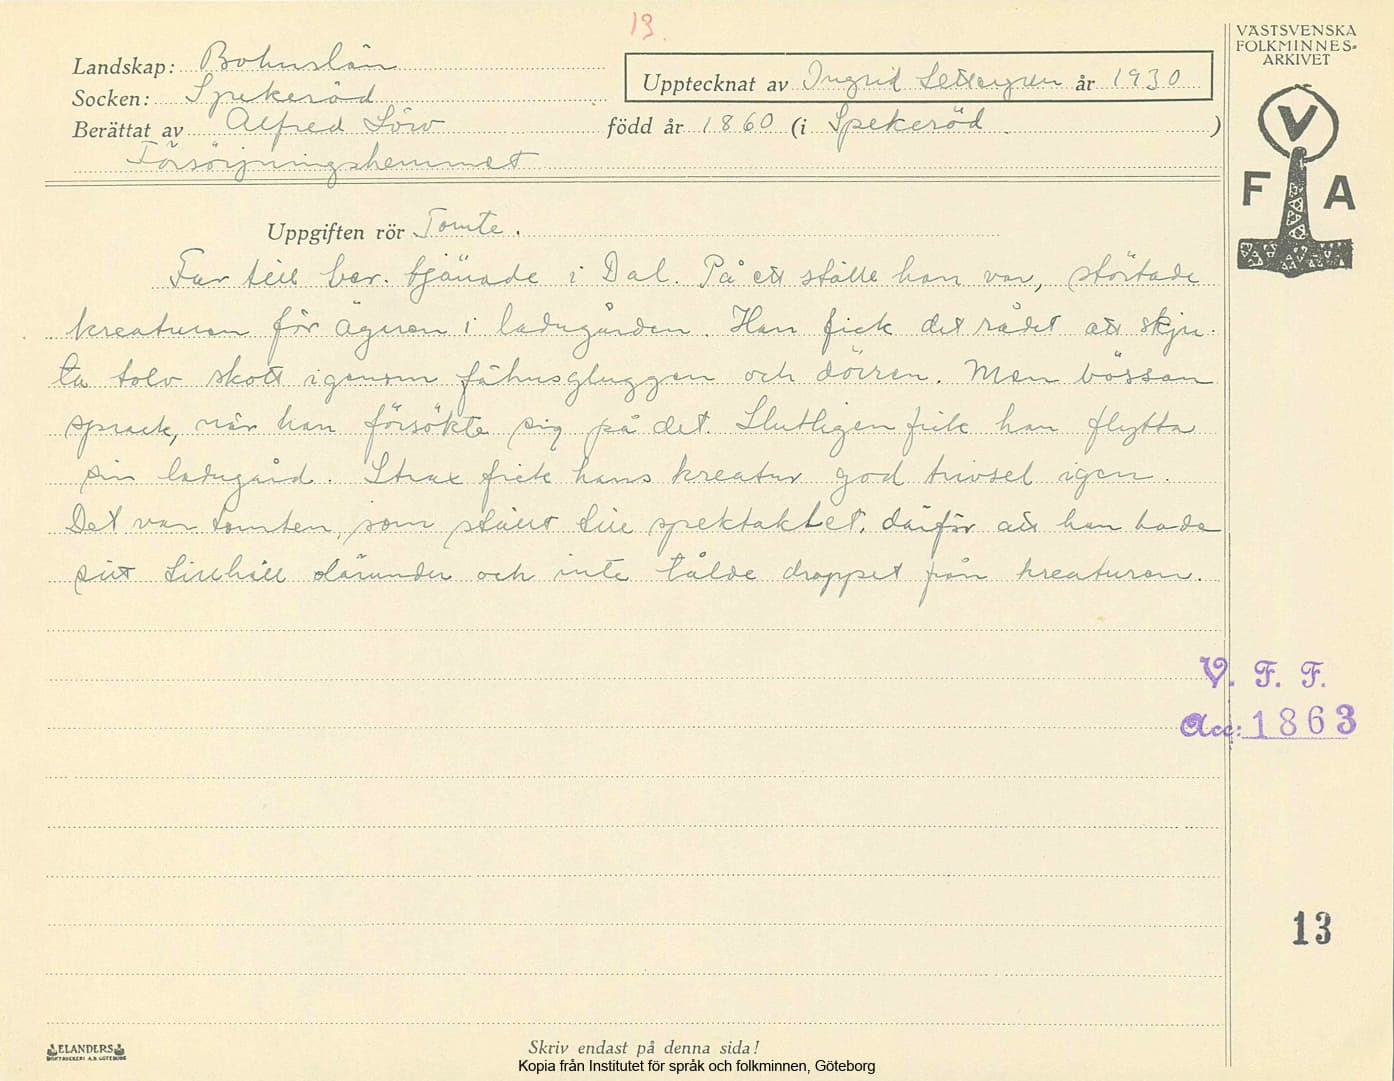 13.
VÄSTSVENSKA
FOLKMINNES-
ARKIVET
Landskap: Bohuslän
Upptecknat av Ingrid år 1930
Socken: Spekeröd
Berättat av Alfred Löw född år 1860 (i Spekeröd)
Försörjningshemmet
V
F A
Uppgiften rör Tomte.
Far till ber. tjänade i Dal. På ett ställe han var, störtade
kreaturen för ägaren i ladugården. Han fick det rådet att skju-
ta tolv skott igenom fähusgluggen och dörren. Men bössan
sprack, när han försökte sig på det. Slutligen fick han flytta
sin ladugård. Strax fick hans kreatur god trivsel igen.
Det var tomten, som ställt till spektaklet, därför att han hade
sitt tillhåll därunder och inte tålde droppet från kreaturen.
V. F. F.
Acc: 1863
13
ELANDERS
BOKTRYCKERI A.B. GÖTEBORG
Skriv endast på denna sida!
Kopia från Institutet för språk och folkminnen, Göteborg